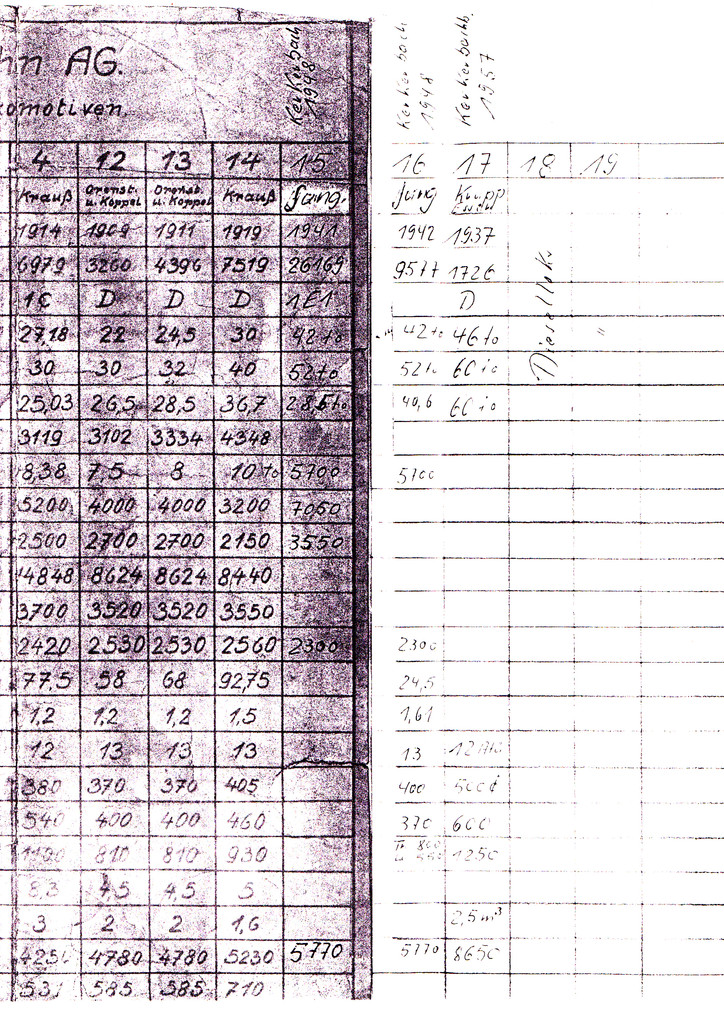 hn AG.
Kerkerbach 1948
Kerkerbach 1948
Kerkerbachb. 1957
komotiven.
4 12 13 14 15 16 17 18 19
Krauß Orenst. u. Koppel Orenst. u. Koppel Krauß Jung. Jung Krupp
1914 1909 1911 1919 1941 1942 1937
6979 3260 4396 7519 26169 9577 1726
1C D D D 1E1 D
27,18 22 24,5 30 42 to 42 to 46 to Dieselloks "
30 30 32 40 52 to 52 to 60 to
25,03 26,5 28,5 36,7 28,6 to 40,6 60 to
3119 3102 3334 4348
8,38 7,5 8 10 to 5700 5700
5200 4000 4000 3200 7050
2500 2700 2700 2150 3550
4848 8624 8624 8440
3700 3520 3520 3550
2420 2530 2530 2560 2300 2300
77,5 58 68 92,75 24,5
1,2 1,2 1,2 1,5 1,61
12 13 13 13 13 12
380 370 370 405 400 500
540 400 400 460 370 600
1100 810 810 930 800 1250
8,3 4,5 4,5 5
3 2 2 1,6 2,5 m³
4250 4780 4780 5230 5770 5770 8650
531 585 585 710